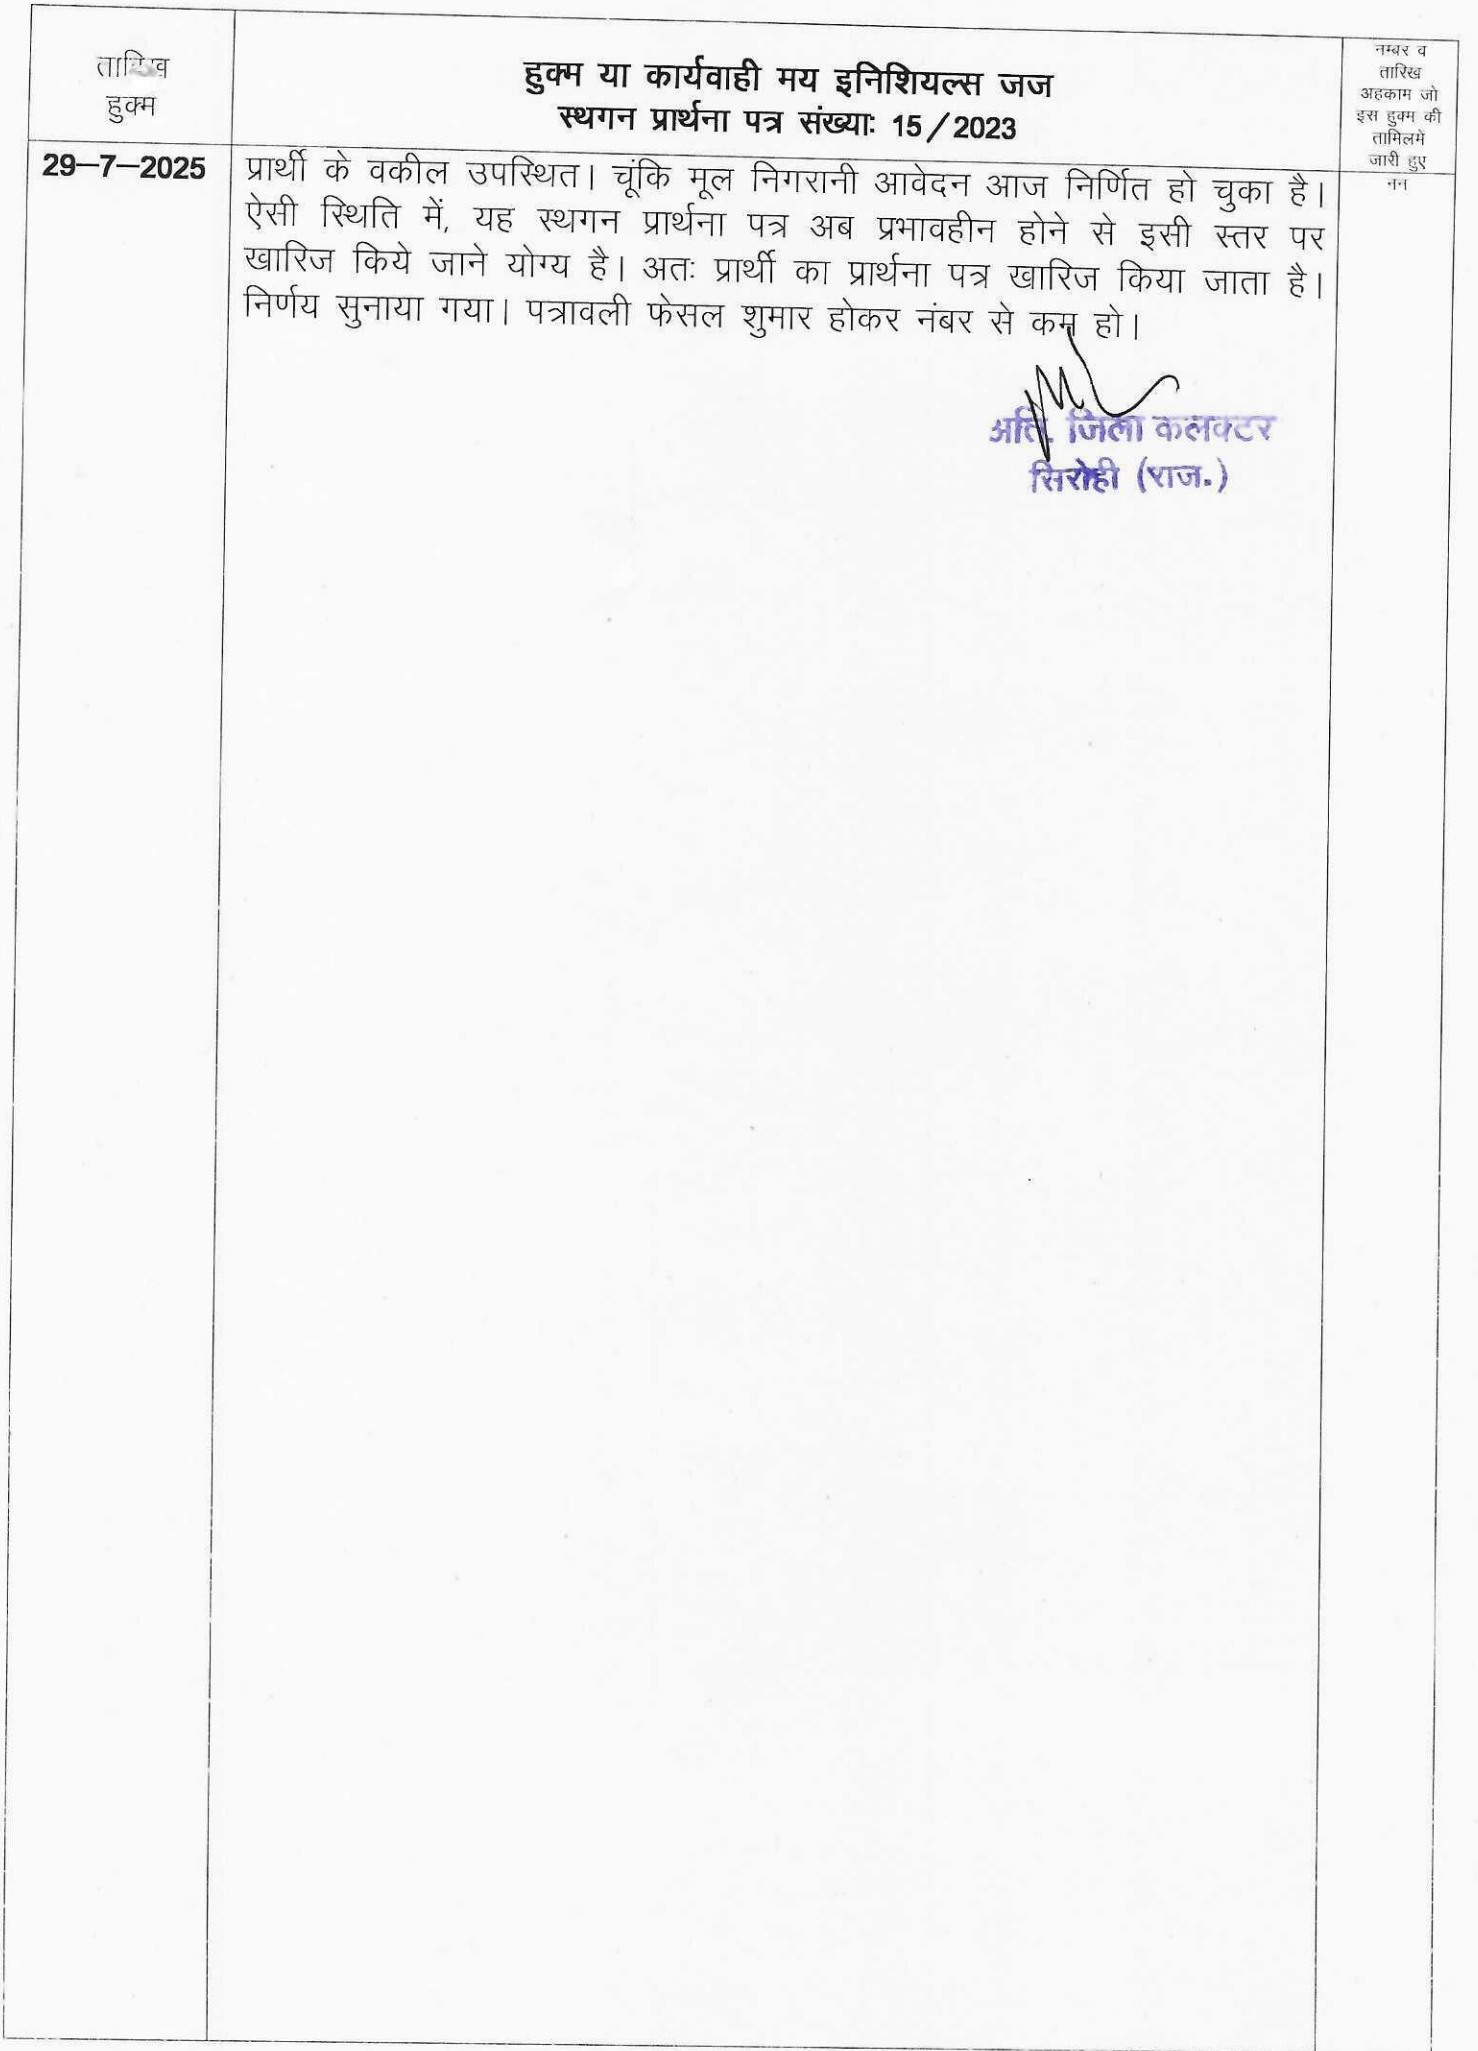 तारिख
हुक्म
हुक्म या कार्यवाही मय इनिशियल्स जज
स्थगन प्रार्थना पत्र संख्याः 15/2023
नम्बर व
तारिख
अहकाम जो
इस हुक्म की
तामिलमें
जारी हुए
29–7–2025
प्रार्थी के वकील उपस्थित। चूंकि मूल निगरानी आवेदन आज निर्णित हो चुका है।
ऐसी स्थिति में, यह स्थगन प्रार्थना पत्र अब प्रभावहीन होने से इसी स्तर पर
खारिज किये जाने योग्य है। अतः प्रार्थी का प्रार्थना पत्र खारिज किया जाता है।
निर्णय सुनाया गया। पत्रावली फेसल शुमार होकर नंबर से कम हो।
नन
अति. जिला कलक्टर
सिरोही (राज.)